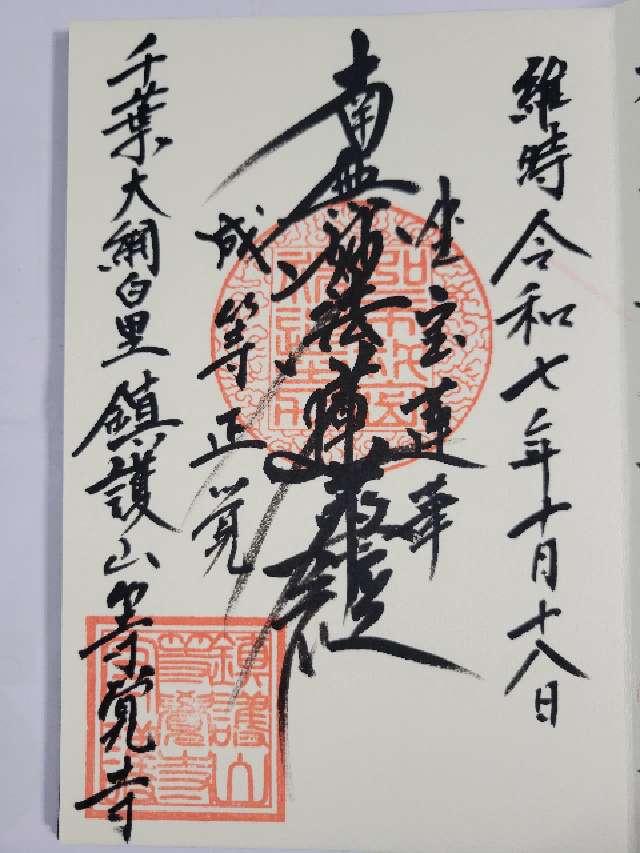 維時令和七年十月十八日
坐宝蓮華
南無妙法蓮華経
成等正覚
千葉大網白里鎮護山等覚寺
鎮護山
等覚寺